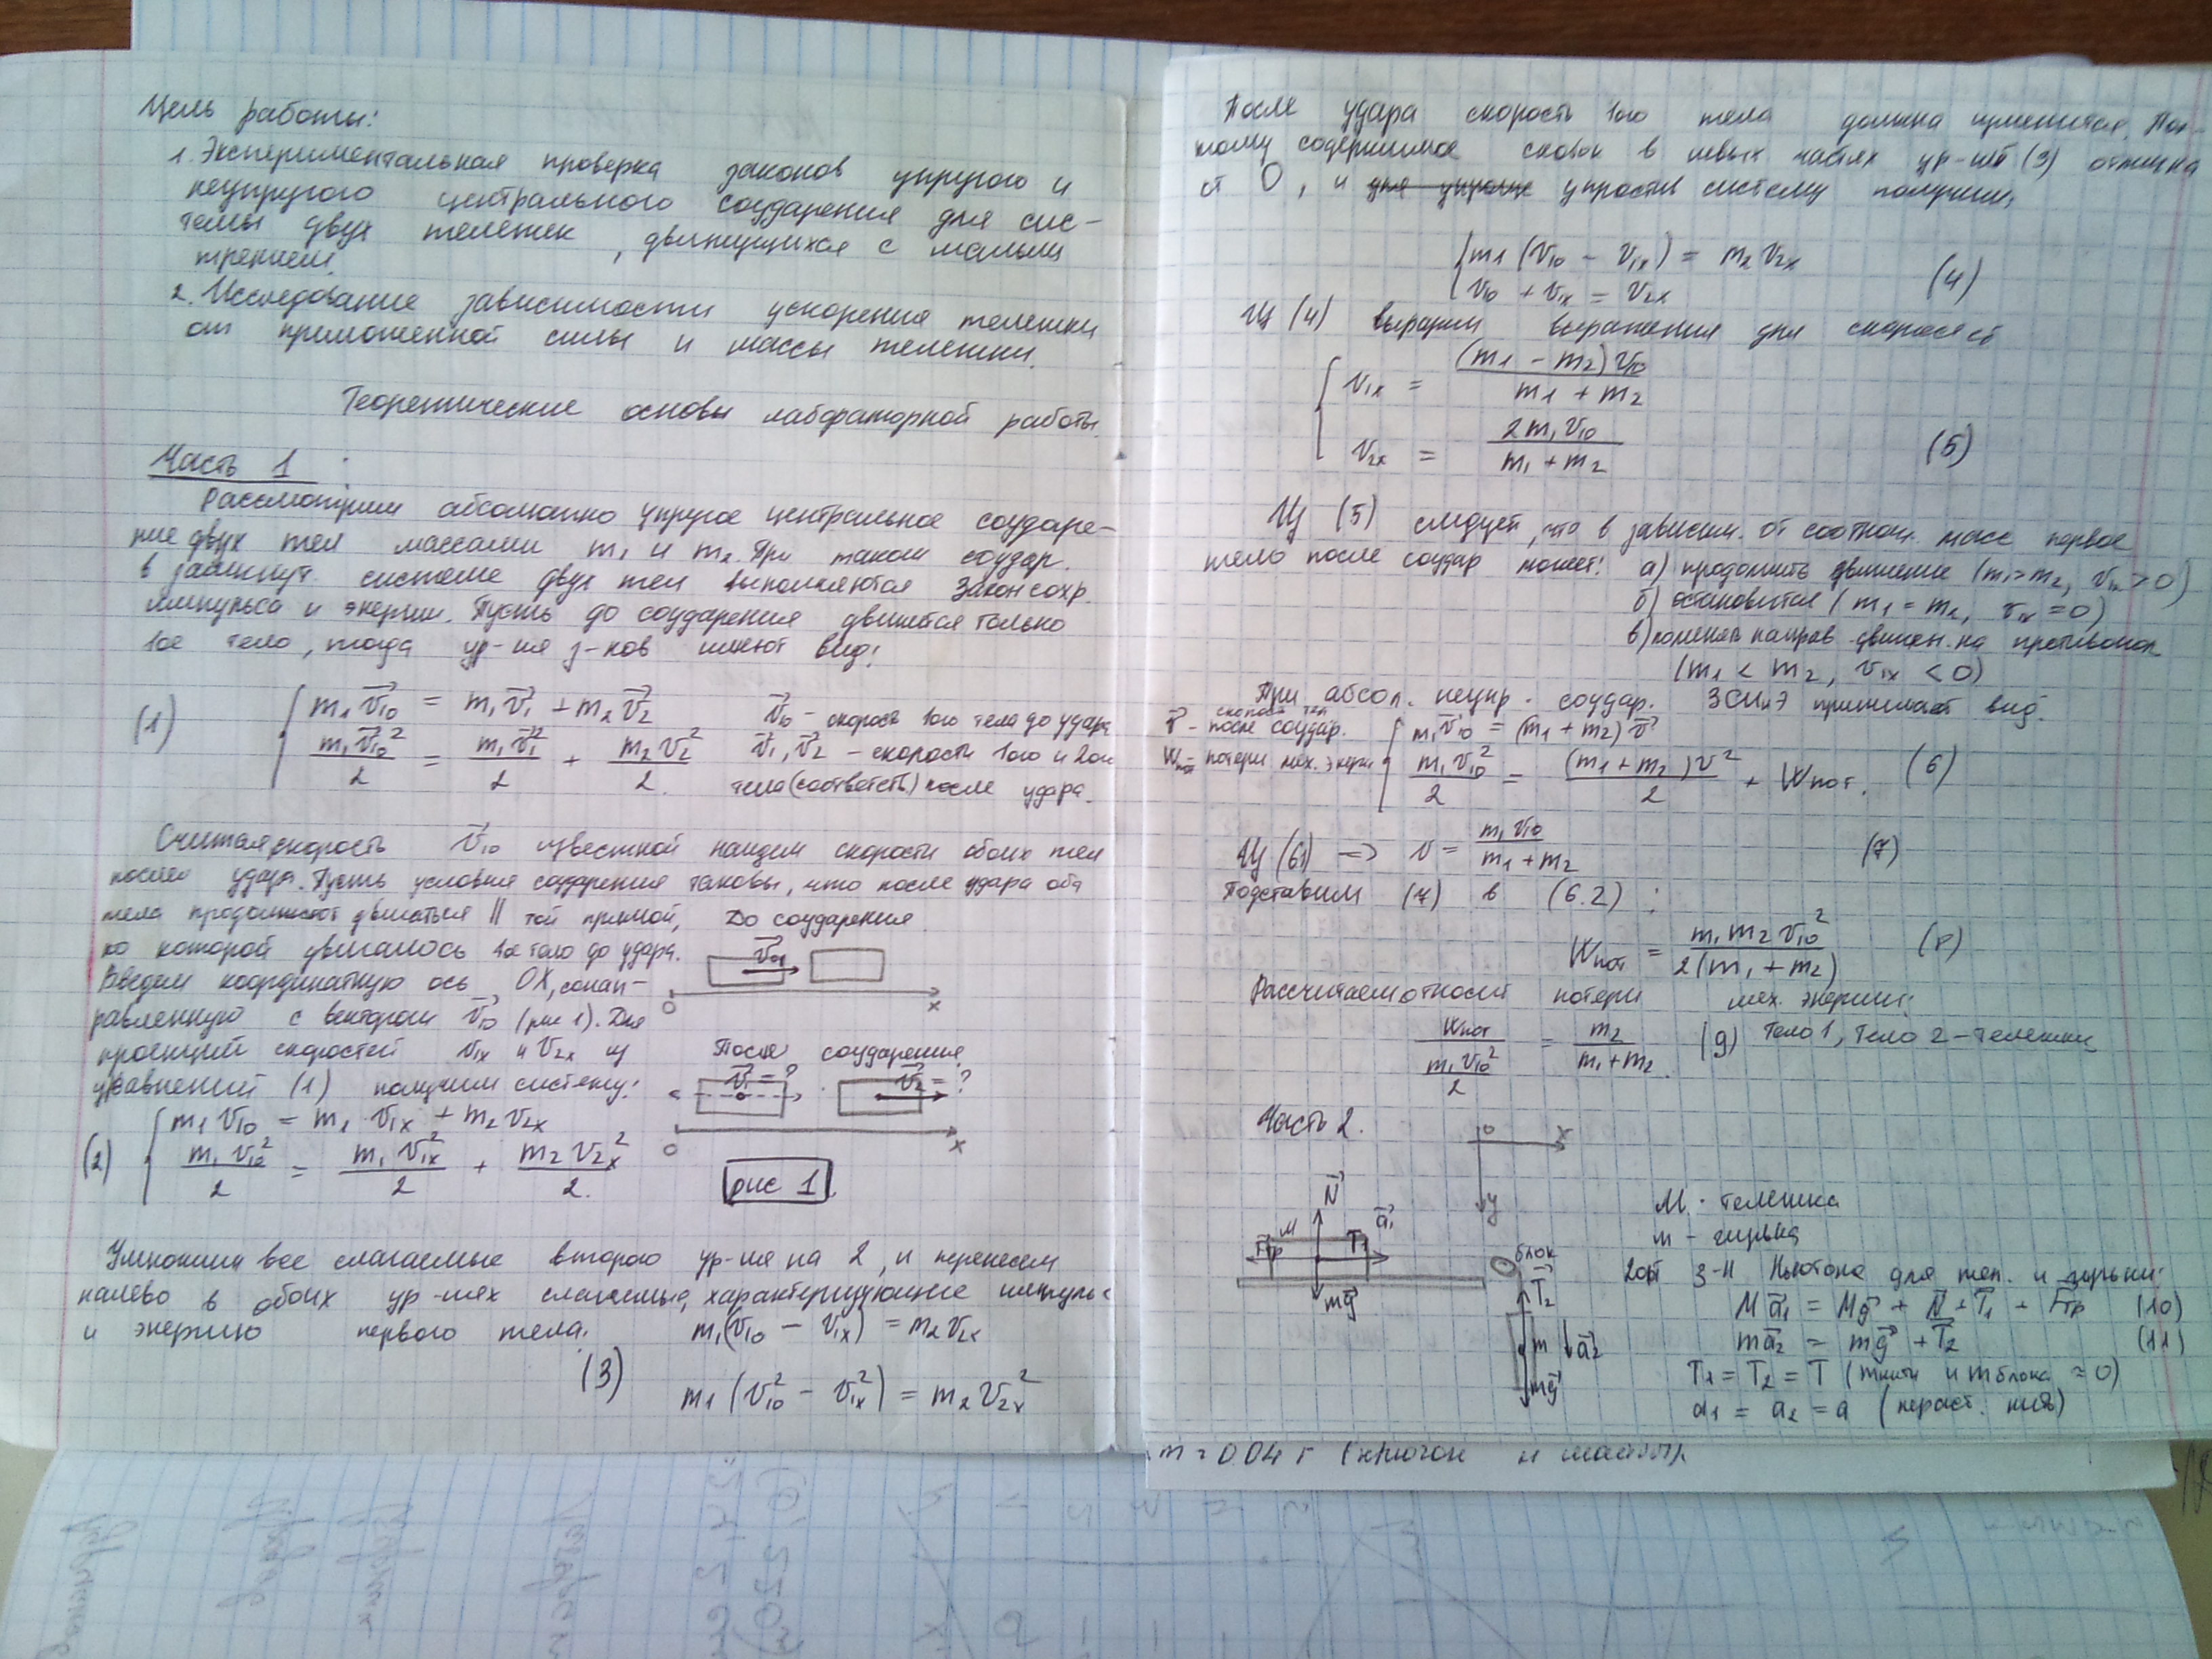 Цель работы:
1. Экспериментальная проверка законов упругого и
неупругого центрального соударения для сис-
темы двух тележек, движущихся с малым
трением.
2. Исследование зависимости ускорения тележки
от приложенной силы и массы тележки.
Теоретические основы лабораторной работы.
Часть 1
Рассмотрим абсолютно упругое центральное соударе-
ние двух тел массами m₁ и m₂. При таком соудар.
в замкнут. системе двух тел выполняются закон сохр.
импульса и энергии. Пусть до соударения движется только
1ое тело, тогда ур-ия з-нов имеют вид:
(1) { m₁v⃗₁₀ = m₁v⃗₁ + m₂v⃗₂ v⃗₁₀ - скорость 1ого тела до удара
m₁v⃗₁₀²/2 = m₁v⃗₁²/2 + m₂v₂²/2. v⃗₁, v⃗₂ - скорости 1ого и 2ого
тела (соответств) после удара.
Считая скорость v⃗₁₀ известной найдем скорости обоих тел
после удара. Пусть условия соударения таковы, что после удара оба
тела продолжают двигаться || той прямой,
по которой двигалось 1ое тело до удара.
Введем координатную ось OX, сонап-
равленную с вектором v⃗₁₀ (рис 1). Для
проекций скоростей v₁ₓ и v₂ₓ из
уравнений (1) получим систему:
До соударения
v⃗₀₁
0 x
После соударения
v⃗₁ = ? v⃗₂ = ?
0 x
рис 1.
(2) { m₁v₁₀ = m₁v₁ₓ + m₂v₂ₓ
m₁v₁₀²/2 = m₁v₁ₓ²/2 + m₂v₂ₓ²/2.
Умножим все слагаемые второго ур-ия на 2, и перенесем
налево в обоих ур-иях слагаемые, характеризующие импульс
и энергию первого тела: m₁(v₁₀ - v₁ₓ) = m₂v₂ₓ
(3) m₁(v₁₀² - v₁ₓ²) = m₂v₂ₓ²
После удара скорость 1ого тела должна измениться. Поэ-
тому содержимое скобок в левых частях ур-ий (3) отлична
от 0, и упростив систему получим:
{ m₁(v₁₀ - v₁ₓ) = m₂v₂ₓ
v₁₀ + v₁ₓ = v₂ₓ (4)
Из (4) выразим выражения для скоростей
{ v₁ₓ = (m₁ - m₂)v₁₀ / m₁ + m₂
v₂ₓ = 2m₁v₁₀ / m₁ + m₂ (5)
Из (5) следует, что в зависим. от соотнош. масс первое
тело после соудар может: а) продолжить движение (m₁>m₂, v₁ₓ>0)
б) остановится (m₁ = m₂, v₁ₓ = 0)
в) поменять направ. движен. на противопол
(m₁ < m₂, v₁ₓ < 0)
При абсол. неупр. соудар. ЗСИиЭ принимает вид.
v⃗ - скорость тел после соудар. { m₁v⃗₁₀ = (m₁ + m₂)v⃗
Wпот - потери мех. энергии m₁v₁₀²/2 = (m₁ + m₂)v²/2 + Wпот. (6)
Из (6.1) => v = m₁v₁₀ / m₁ + m₂ (7)
Подставим (7) в (6.2):
Wпот = m₁m₂v₁₀² / 2(m₁ + m₂) (8)
Рассчитаем относит потери мех. энергии:
Wпот / (m₁v₁₀²/2) = m₂ / m₁ + m₂. (9) Тело 1, Тело 2 - тележки
Часть 2.
0 x
y
N⃗
M a⃗₁
F⃗тр T⃗₁
mg⃗
блок
T⃗₂
m a⃗₂
mg⃗
M - тележка
m - гирька
2ой з-н Ньютона для тел. и гирьки:
Ma⃗₁ = Mg⃗ + N⃗ + T⃗₁ + F⃗тр (10)
ma⃗₂ = mg⃗ + T⃗₂ (11)
T₁ = T₂ = T (mнити и mблока ≈ 0)
a₁ = a₂ = a (нераст. нить)
m = 0.04 г (крючок и шайбы).